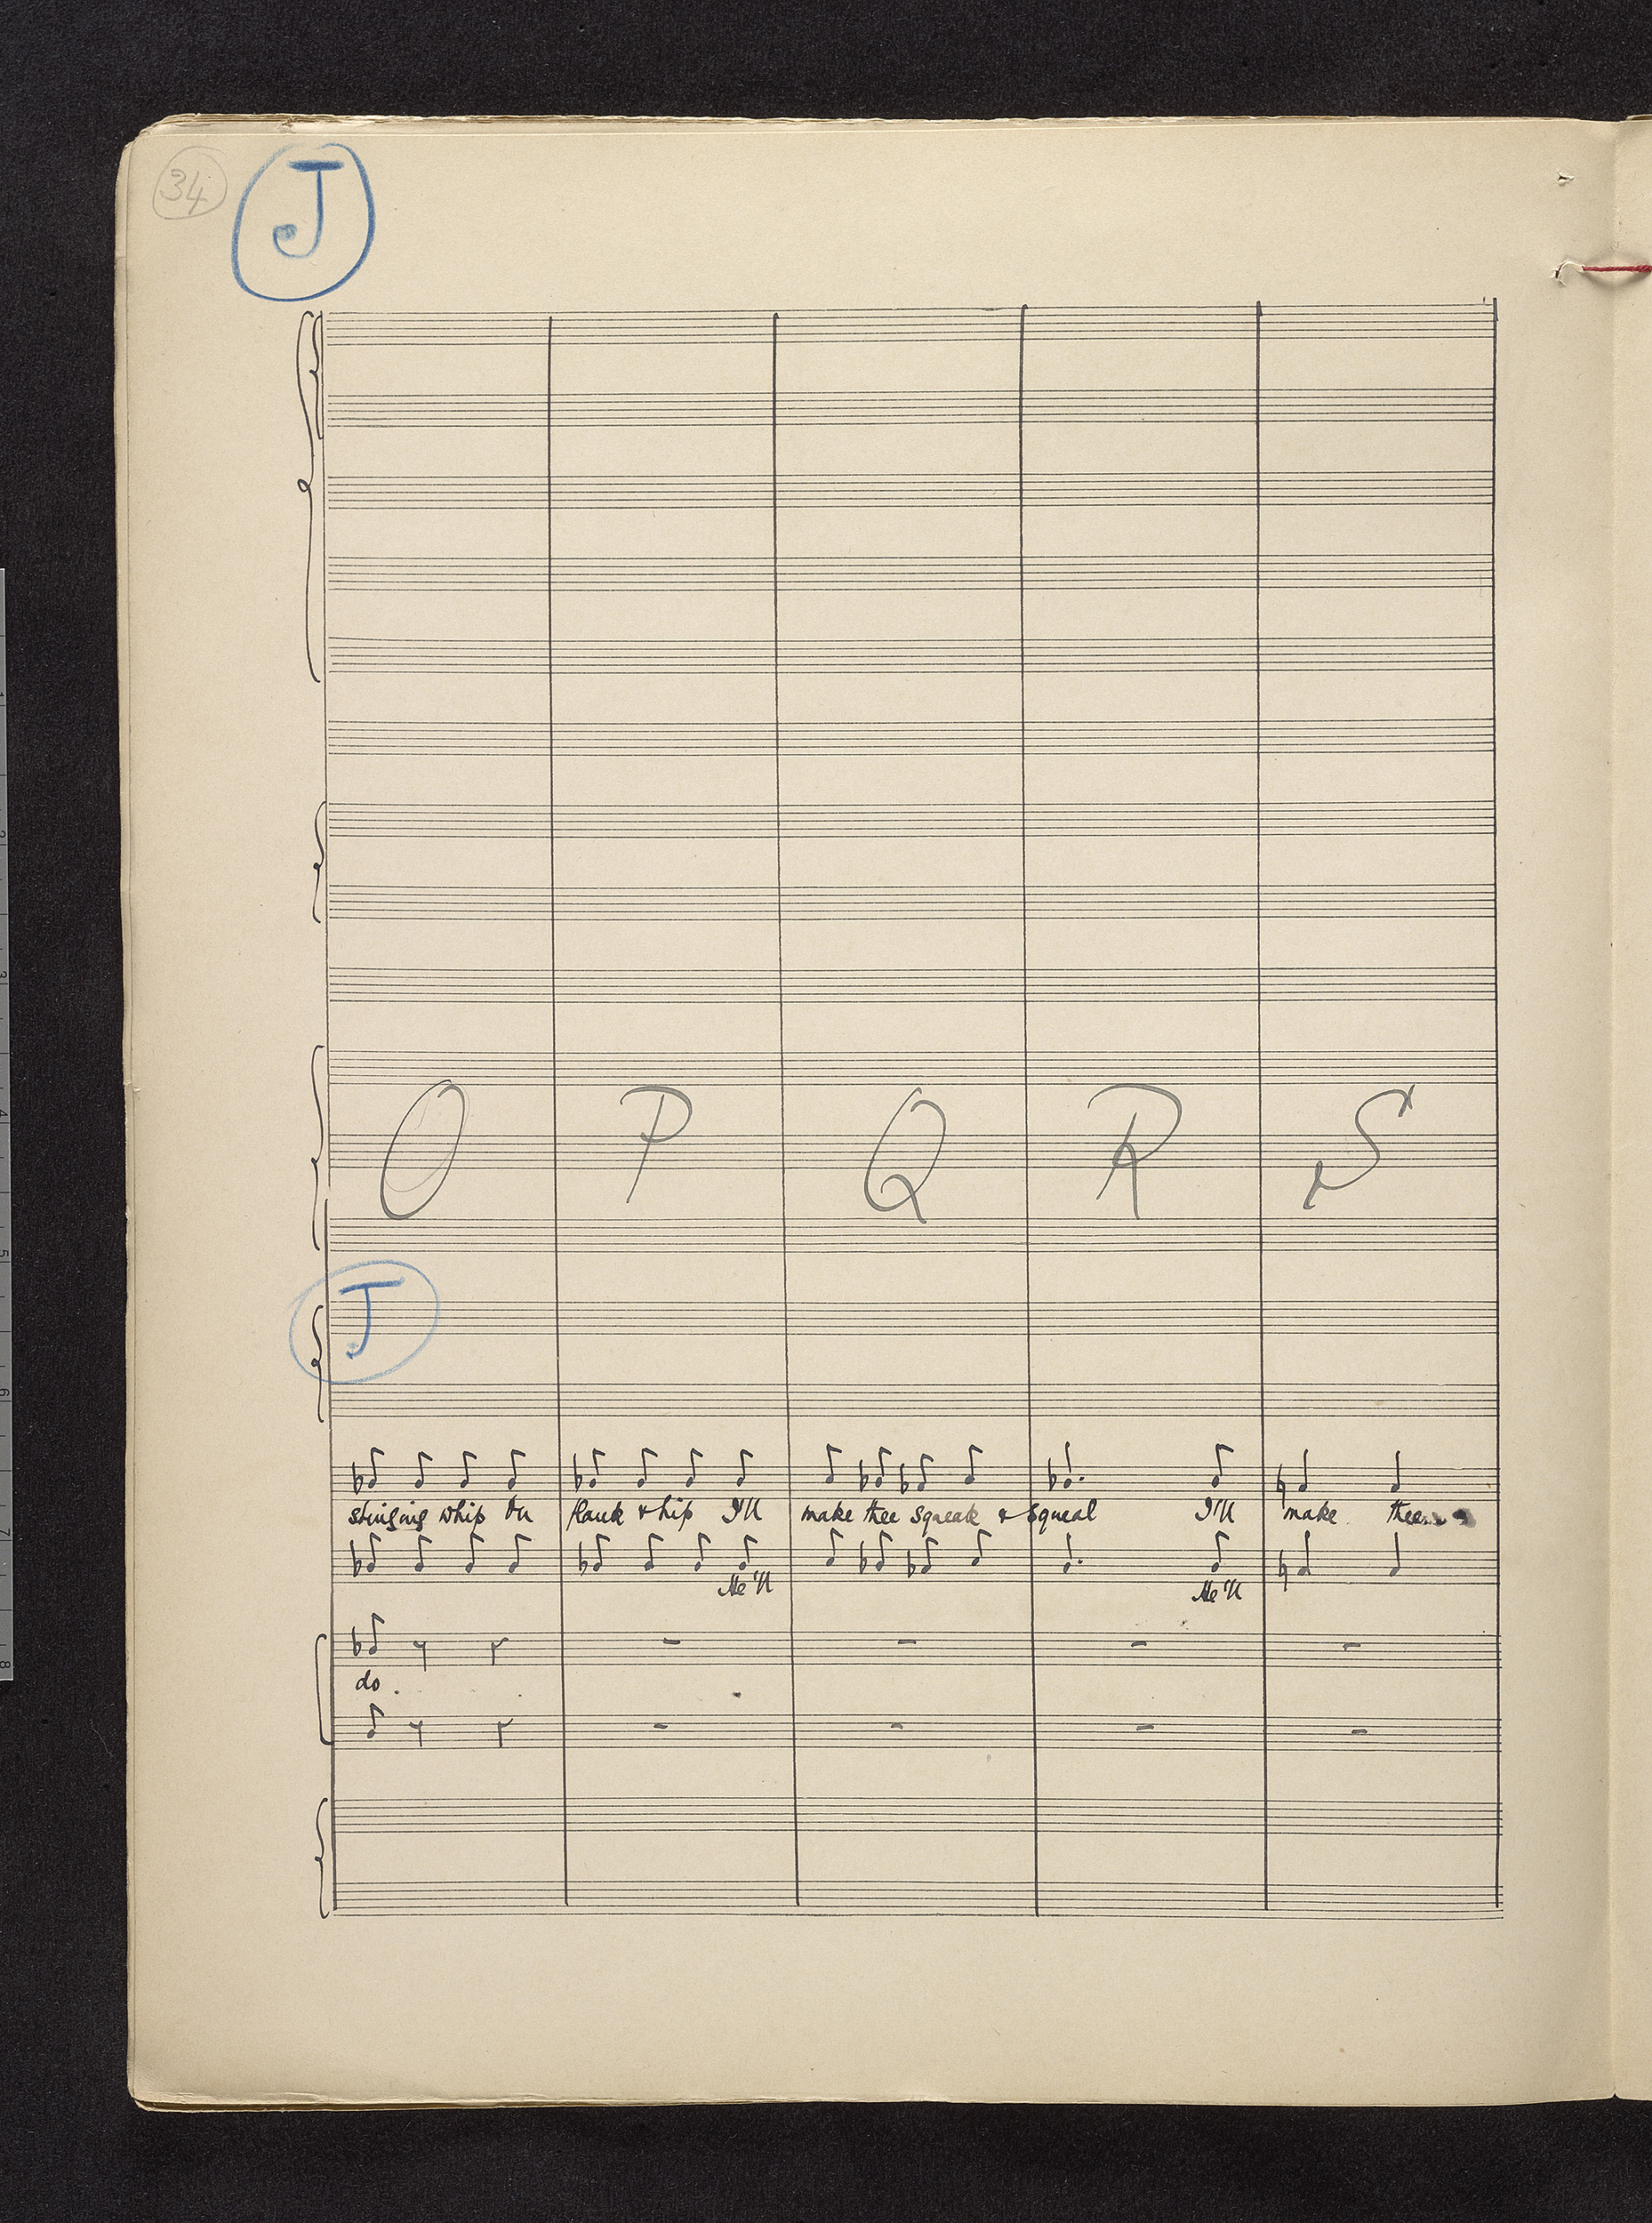 34
J
O P Q R S
J
stinging whip On flank & hip I'll make thee squeak & squeal I'll make thee
He'll He'll
do.